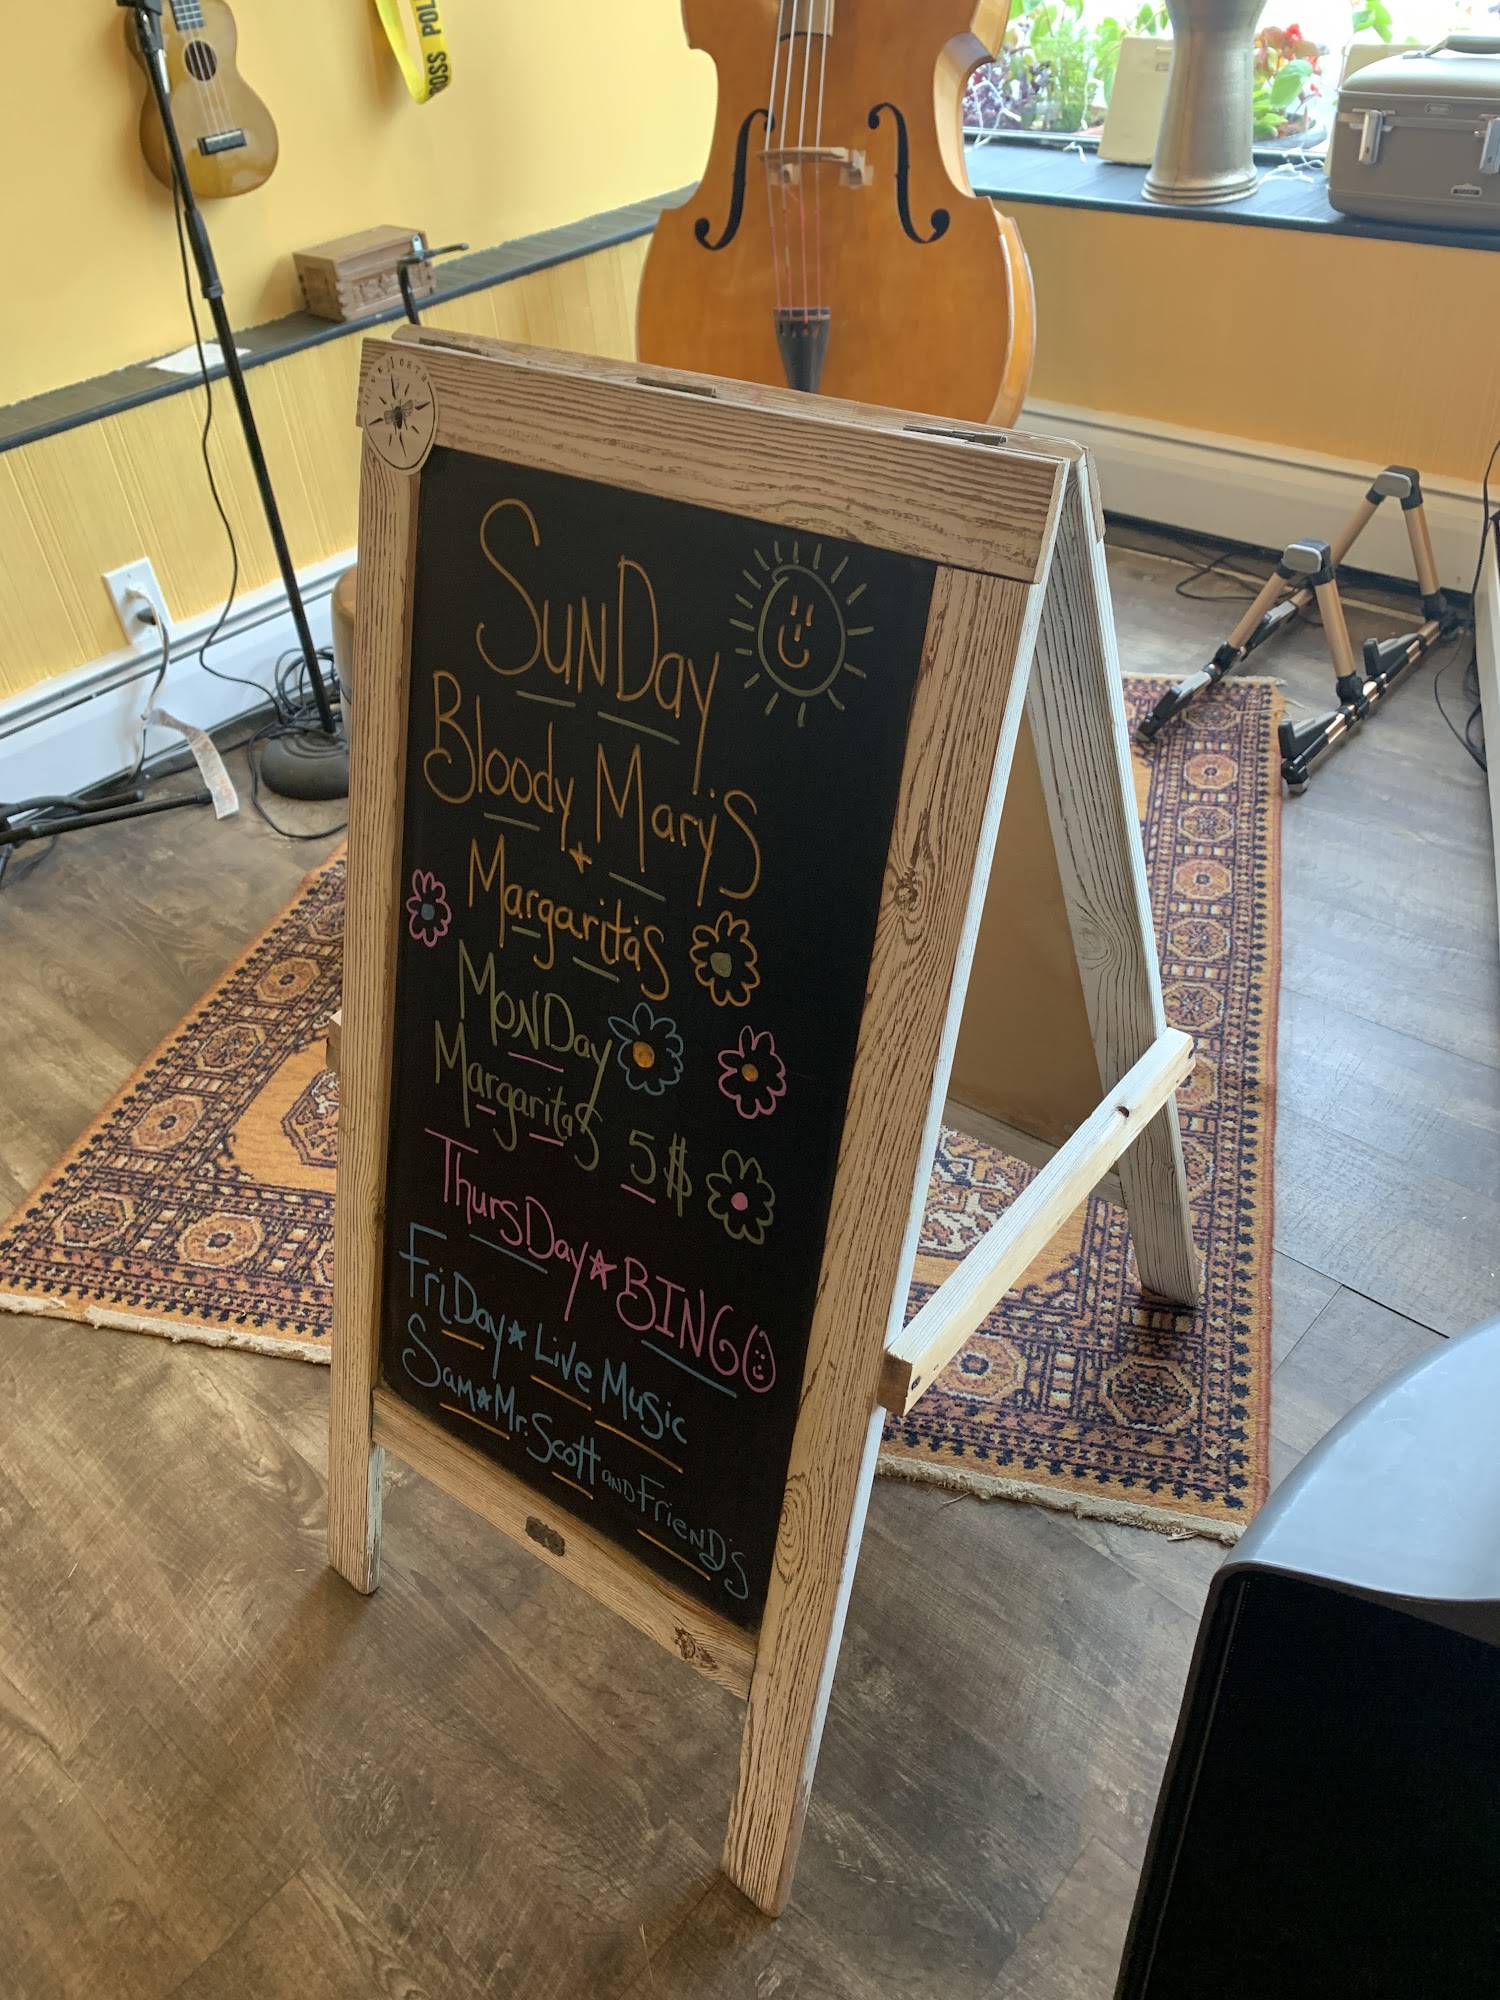 POL
ROSS
HIVE NORTH
SunDay
Bloody Mary's
+
Margarita's
MONDay
Margarita's 5$
ThursDay★BINGO
FriDay★Live Music
Sam★Mr. Scott AND FrienD's